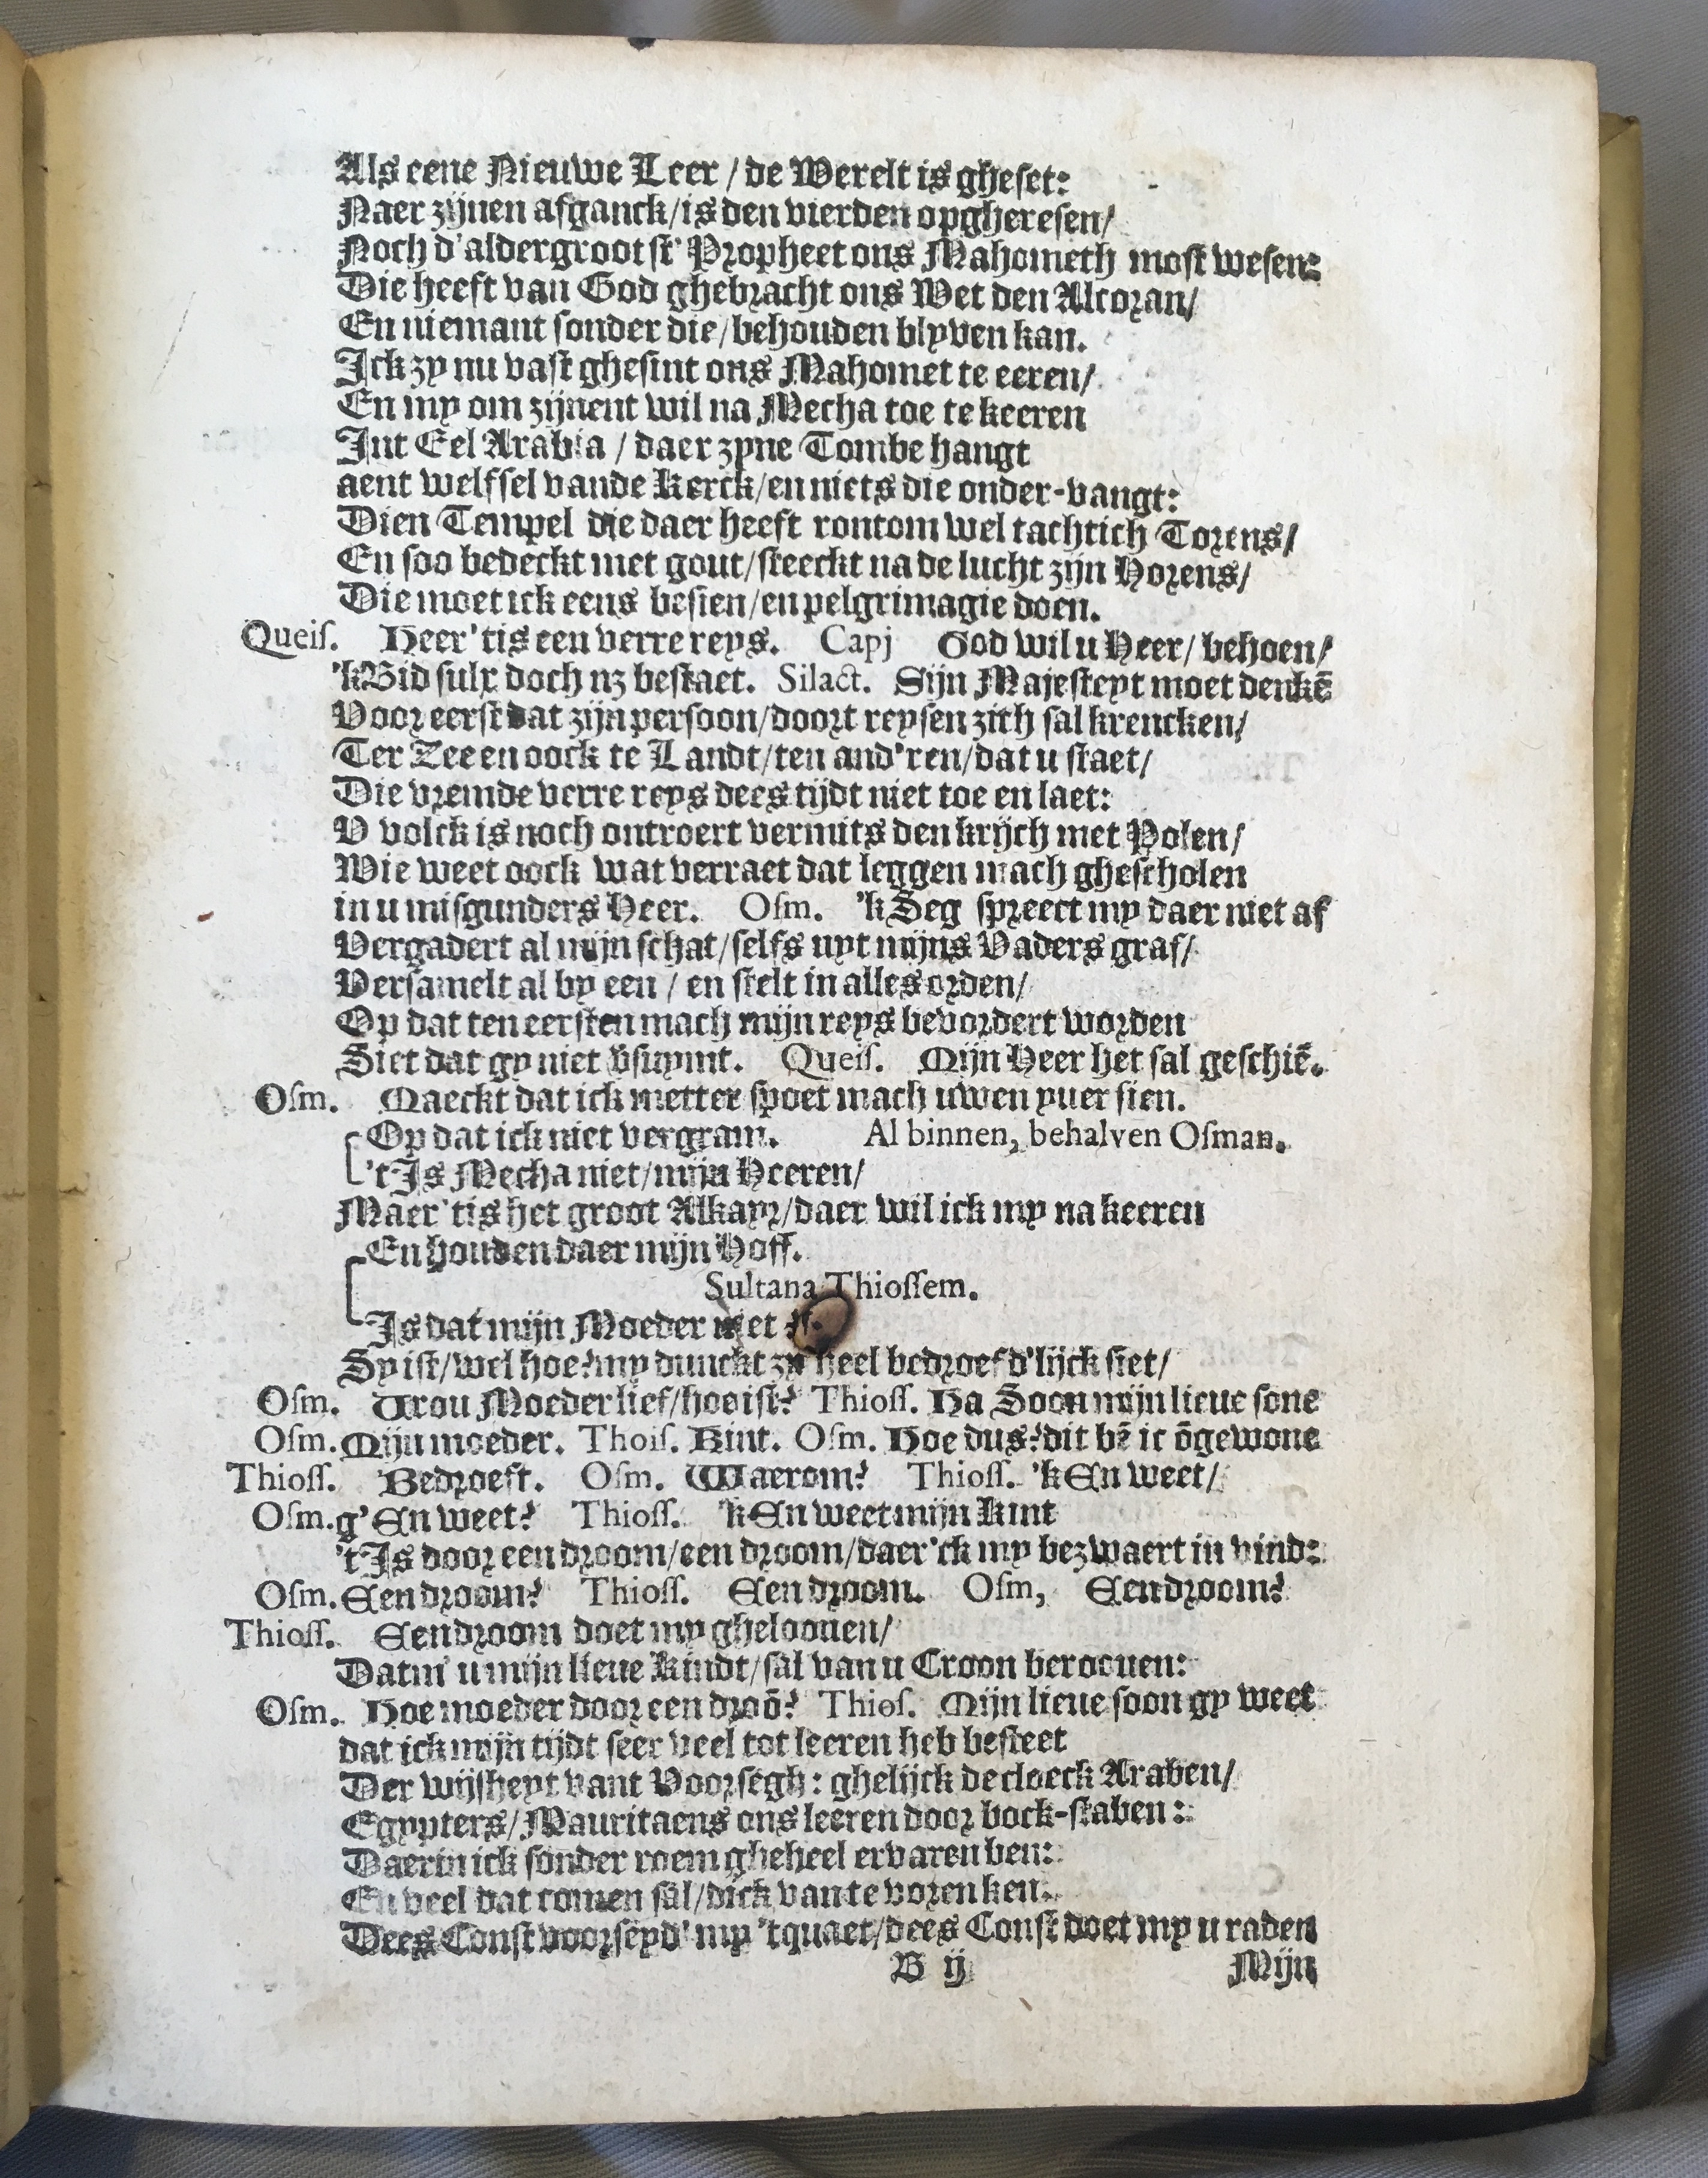 Als eene Nieuwe Leer / de Werelt is gheset:
Naer zijnen afganck/is den vierden opgheresen/
Noch d'aldergrootst' Propheet ons Mahometh most wesen:
Die heeft van God ghebracht ons Wet den Alcoran/
En niemant sonder die/behouden blyven kan.
Ick zy nu vast ghesint ons Mahomet te eeren/
En my om zijnent wil na Mecha toe te keeren
Int Eel Arabia / daer zyne Tombe hangt
aent welfsel vande Kerck/en niets die onder-vangt:
Dien Tempel die daer heeft rontom wel tachtich Torens/
En soo bedeckt met gout/steeckt na de lucht zijn Horens/
Die moet ick eens besien/en pelgrimagie doen.
Queis. Heer 'tis een verre reys. Capj God wil u Heer/ behoen/
'k Bid sulx doch nz bestaet. Silact. Sijn Majesteyt moet denkē
Voor eerst dat zijn persoon/doort reysen zich sal krencken/
Ter Zee en oock te Landt/ten and'ren/dat u staet/
Die vremde verre reys dees tijdt niet toe en laet:
V volck is noch ontroert vermits den krijch met Polen/
Wie weet oock wat verraet dat leggen mach ghescholen
in u misgunders Heer. Osm. 'k Seg spreect my daer niet af
Vergadert al mijn schat/selfs uyt mijns Vaders graf/
Versamelt al by een / en stelt in alles orden/
Op dat ten eersten mach mijn reys bevordert worden
Siet dat gy niet v̄suymt. Queis. Mijn Heer het sal geschiē.
Osm. Maeckt dat ick metter spoet mach uwen yver sien.
Op dat ick niet vergram. Al binnen, behalven Osman.
't Is Mecha niet/mijn Heeren/
Maer 'tis het groot Alkayr/daer wil ick my na keeren
En houden daer mijn Hoff.
Sultana Thiossem.
Is dat mijn Moeder niet
Sy ist/wel hoe? my dunckt zy heel bedroefd'lijck siet/
Osm. Vrou Moeder lief/hoe ist? Thioss. Ha Soon mijn lieve sone
Osm. Mijn moeder. Thois. Kint. Osm. Hoe dus? dit bē ic ōgewone
Thioss. Bedroeft. Osm. Waerom? Thioss. 'k En weet/
Osm. g'En weet? Thioss. 'k En weet mijn Kint
't Is door een droom/een droom/daer 'ck my bezwaert in vind:
Osm. Een droom? Thioss. Een droom. Osm, Een droom?
Thioss. Een droom doet my ghelooven/
Datm' u mijn lieve Kindt/sal van u Croon berooven:
Osm. Hoe moeder door een droō? Thios. Mijn lieve soon gy weet
dat ick mijn tijdt seer veel tot leeren heb besteet
Der wijsheyt vant Voorsegh: ghelijck de cloeck Araben/
Egypters/Mauritaens ons leeren door bock-staben:
Daerin ick sonder roem gheheel ervaren ben:
En veel dat comen sal/dick van te voren ken.
Dees Const voorseyd' my 'tquaet/dees Const doet my u raden
B ij Mijn